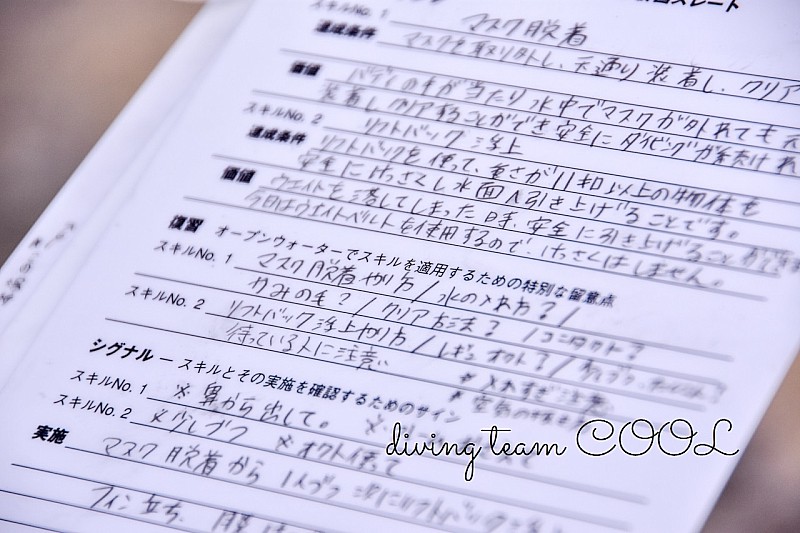 スレート
スキルNo. 1 マスク脱着
達成条件 マスクを取り外し、元通り装着し、クリア
価値 バディの手が当たり水中でマスクが外れても元
装着しクリアすることができ安全にダイビングが続けれ
スキルNo. 2 リフトバック浮上
達成条件 リフトバックを使って、重さが11キロ以上の物体を
安全にけっさくし水面へ引き上げることです。
価値 ウエイトを落してしまった時、安全に引き上げること
今日はウエイトベルトを使用するので、けっさくはしません。
復習 オープンウォーターでスキルを適用するための特別な留意点
スキルNo. 1 マスク脱着やり方/水の入れ方?/
かみの毛?/クリア方法?/コンタクト?
スキルNo. 2 リフトバック浮上やり方/レギュオクト?/
待っている人に注意。 *入れすぎ注意
*空気の
シグナル ー スキルとその実施を確認するためのサイン
スキルNo. 1 ※鼻から出して。 ※
スキルNo. 2 ※少しプク ※オクト使って
diving team COOL
実施 マスク脱着から1人づつ
フィン立ち、